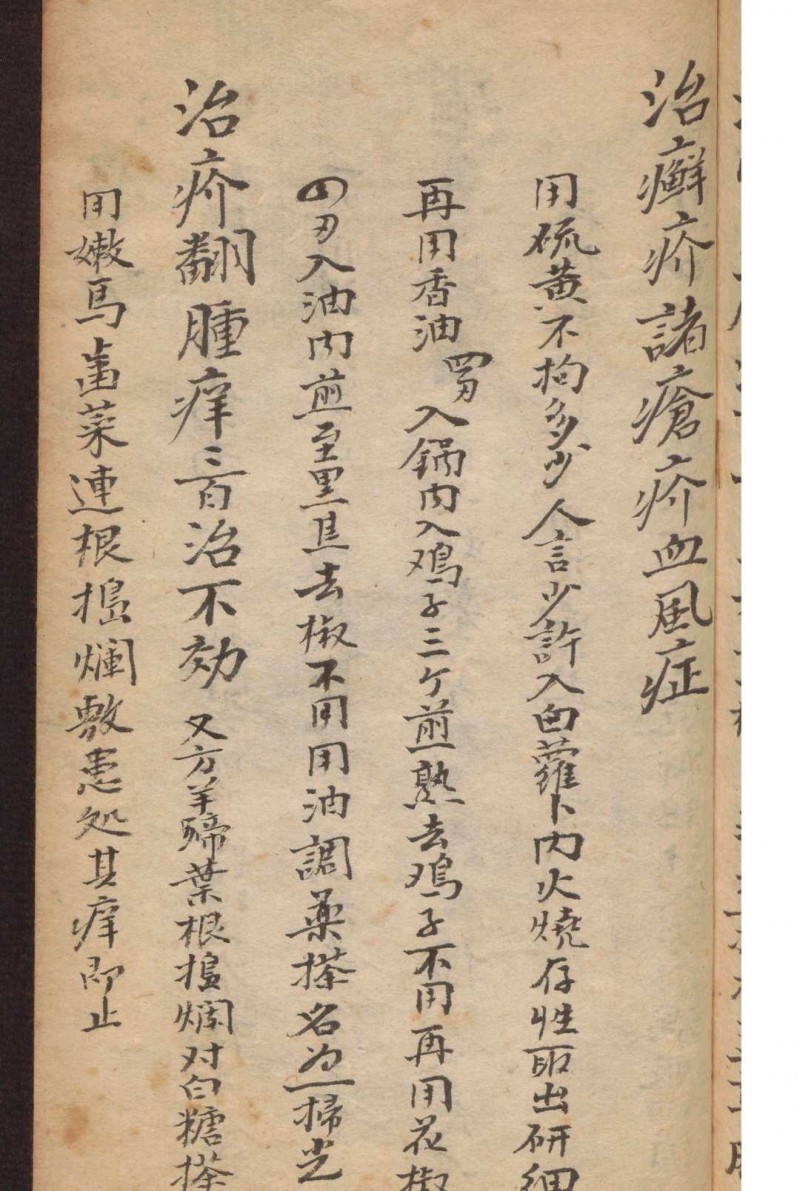 治癬疥諸瘡疥血風症
用硫黃不拘多少人言少許入白蘿卜内火燒存性取出研細
再用香油四两入鍋内入鸡子三个煎熟去鸡子不用再用花椒
四两入油内煎至黑焦去椒不用用油調藥搽名為一掃光
治疥翻腫痒三百治不効 又方羊蹄葉根搗爛对白糖搽
用嫩馬齒菜連根搗爛敷患処其痒即止